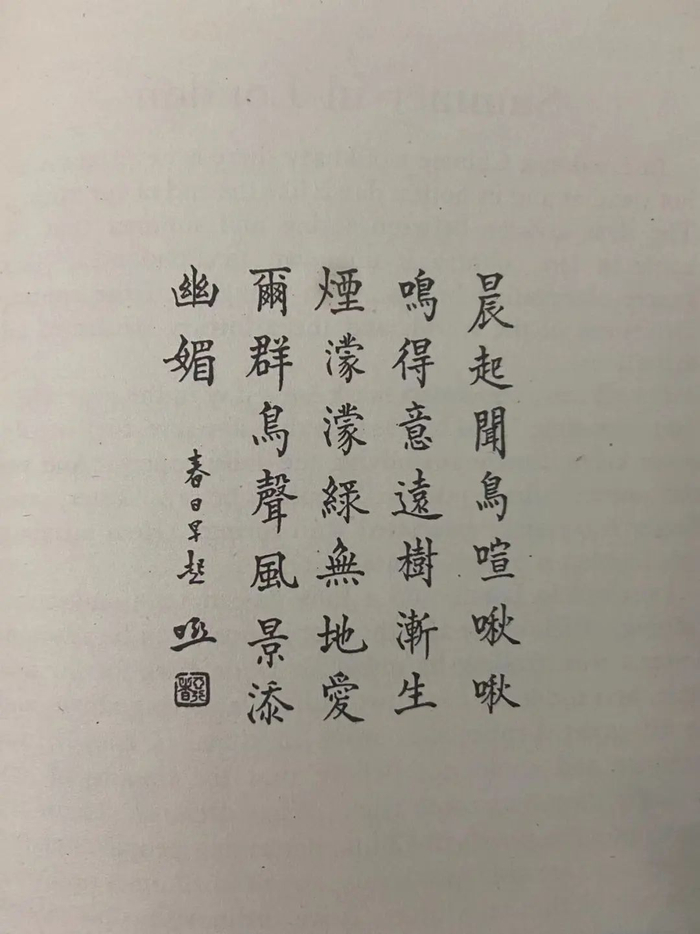 晨起聞鳥喧啾啾
鳴得意遠樹漸生
煙濛濛綠無地愛
爾群鳥聲風景添
幽媚
春日早起